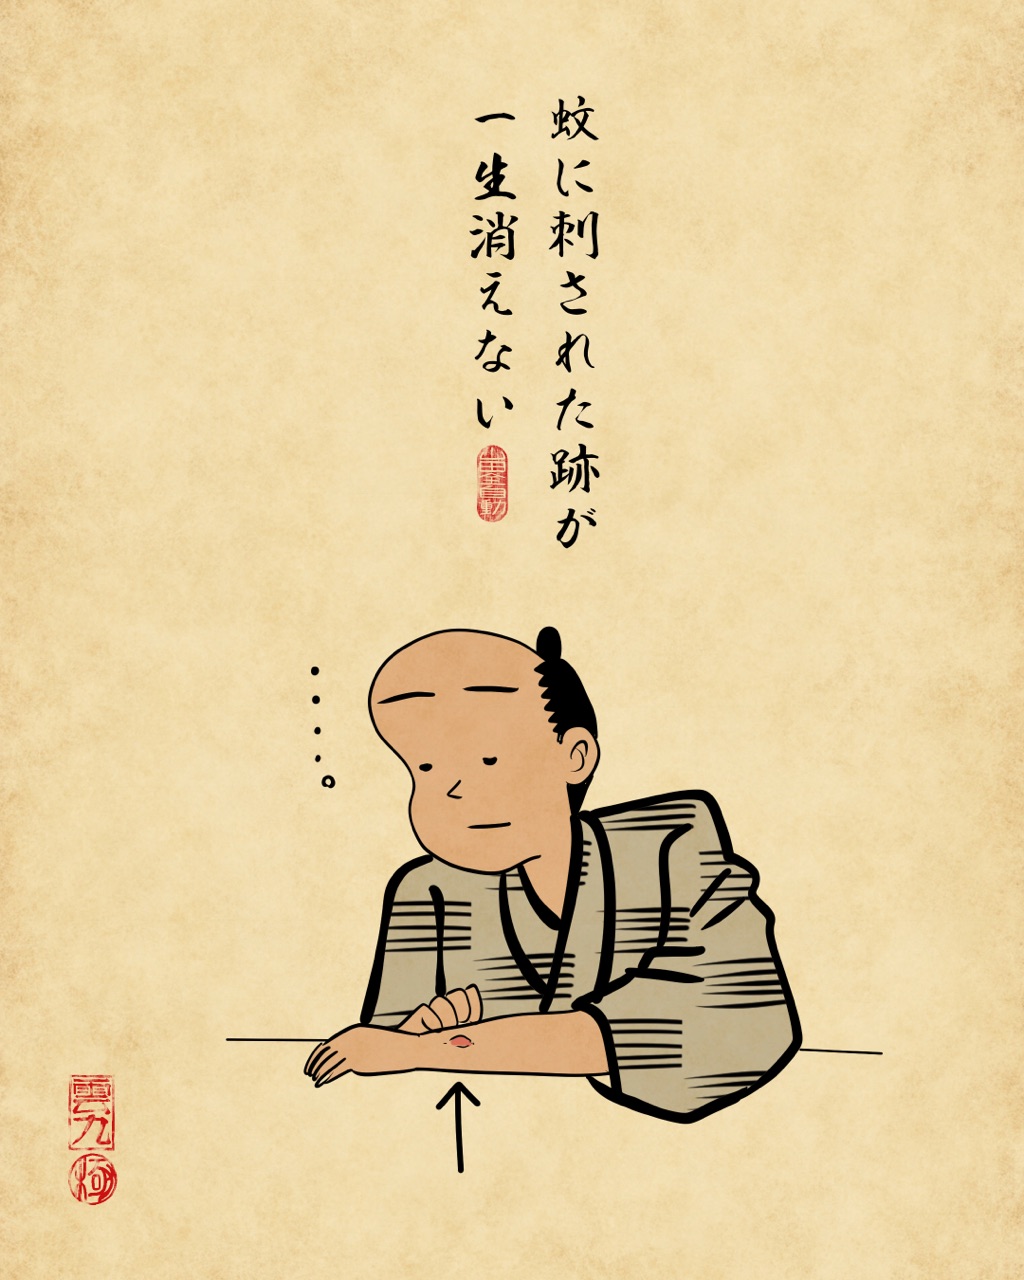 蚊に刺された跡が
一生消えない